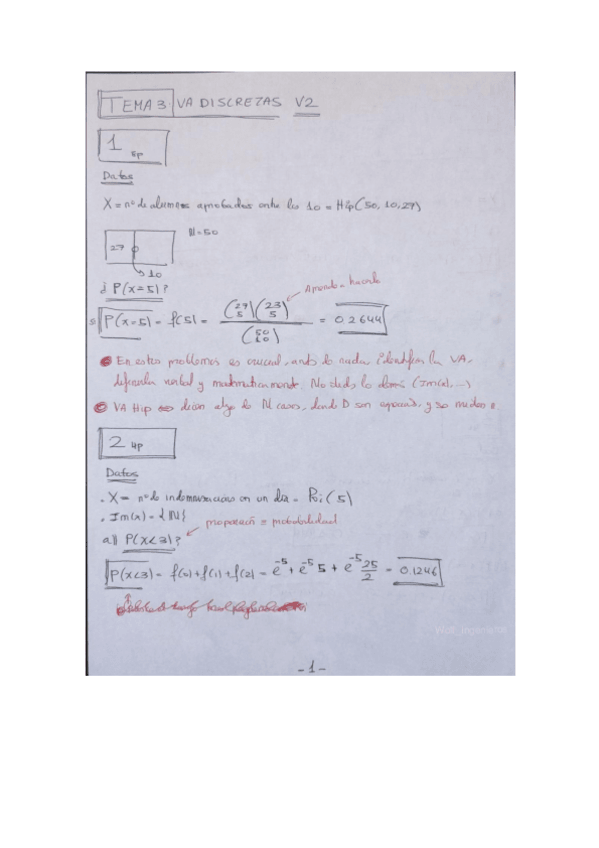 TEMA 3 VA DISCRETAS V2
1 5p
Datos
X = nº de alumnos aprobados entre los 10 = Hip(50, 10, 27)
27 N=50
10
¿ P(x=5)?
Aprende a hacerlo
P(x=5) = f(5) = (27 5)(23 5) / (50 10) = 0.2644
En estos problemas es crucial, antes de nada, identificar la VA,
definirla verbal y matemáticamente. No olvides lo demás (Im(x), ...)
VA Hip dicen algo de N casos, donde D son especiales, y se miden
2 4p
Datos
. X = nº de indemnizaciones en un día = Poi(5)
. Im(x) = {IN}
proporción = probabilidad
a) P(x<3)?
P(x<3) = f(0)+f(1)+f(2) = e^-5 + e^-5 5 + e^-5 25/2 = 0.1246
-1-